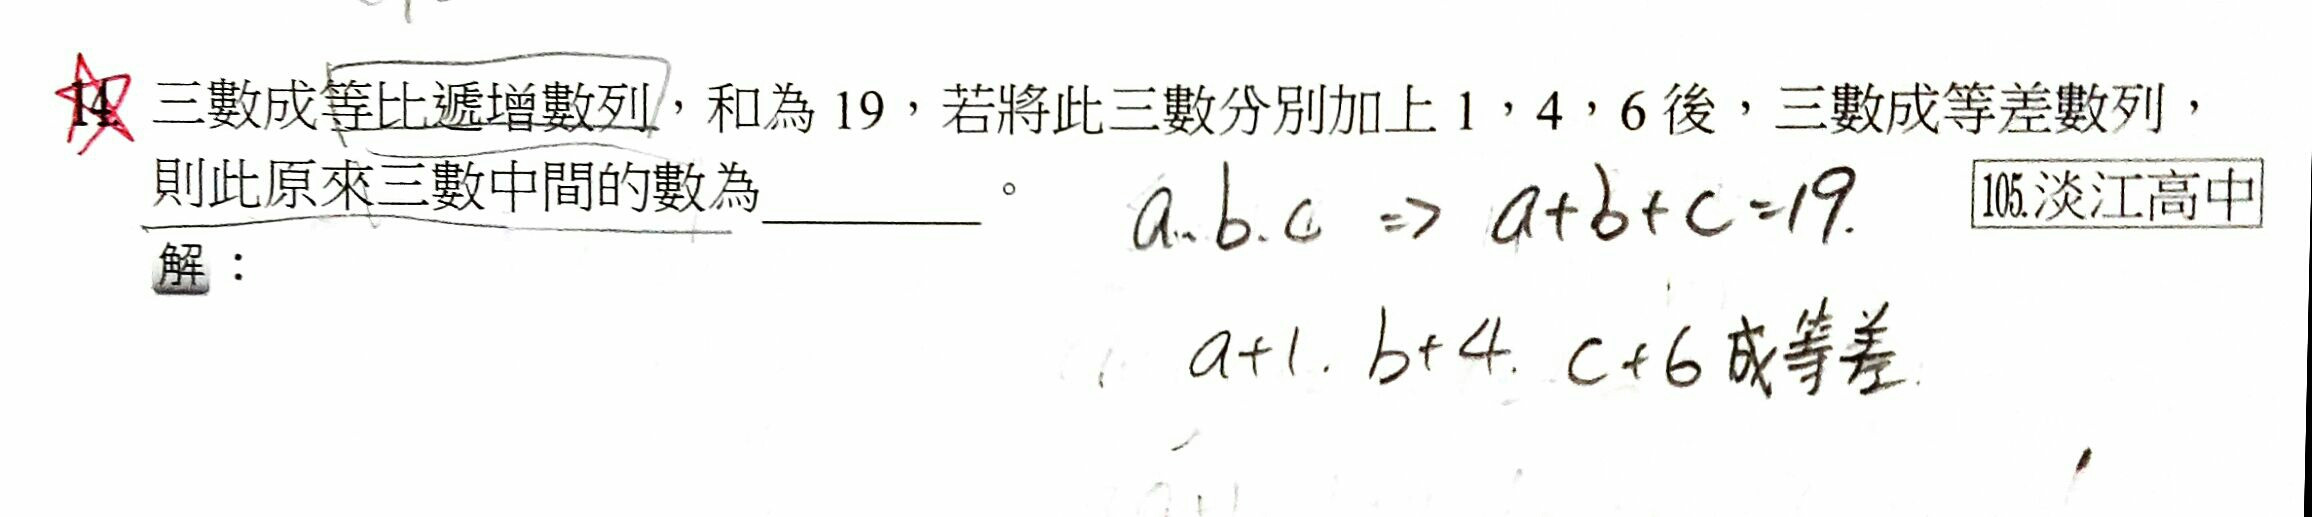 14. 三數成等比遞增數列，和為 19，若將此三數分別加上 1，4，6 後，三數成等差數列，
則此原來三數中間的數為＿＿＿＿。
105.淡江高中
解：
a.b.c => a+b+c=19.
a+1. b+4. c+6 成等差.